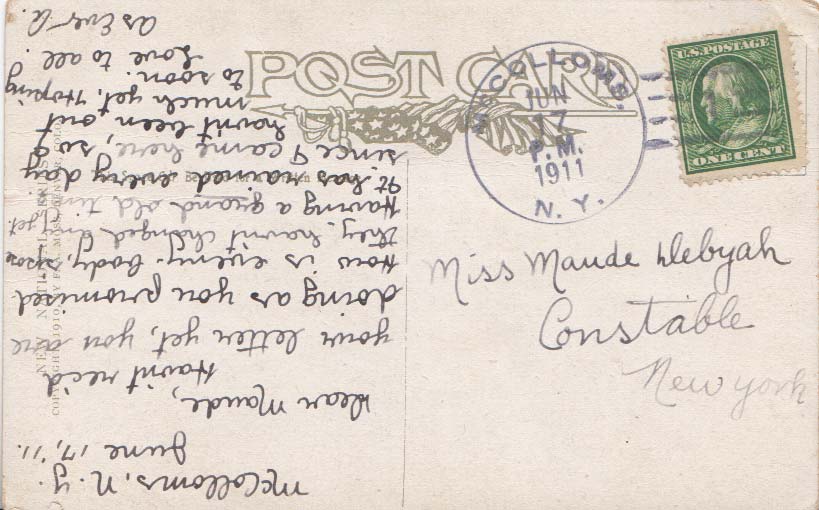 POST CARD
McCOLLOMS.
JUN
17
P.M.
1911
N. Y.
U.S. POSTAGE
ONE CENT
Miss Maude Debyah
Constable
New York
McColloms, N.Y.
June 17, '11.
Dear Maude,
Havn't rec'd
your letter yet, you are
doing as you promised
How is every-body, spose
they havn't changed any yet.
Having a grand old time
It has rained every day
since I came here, so
havn't been out
much yet. Hoping
to soon.
Love to all.
As Ever